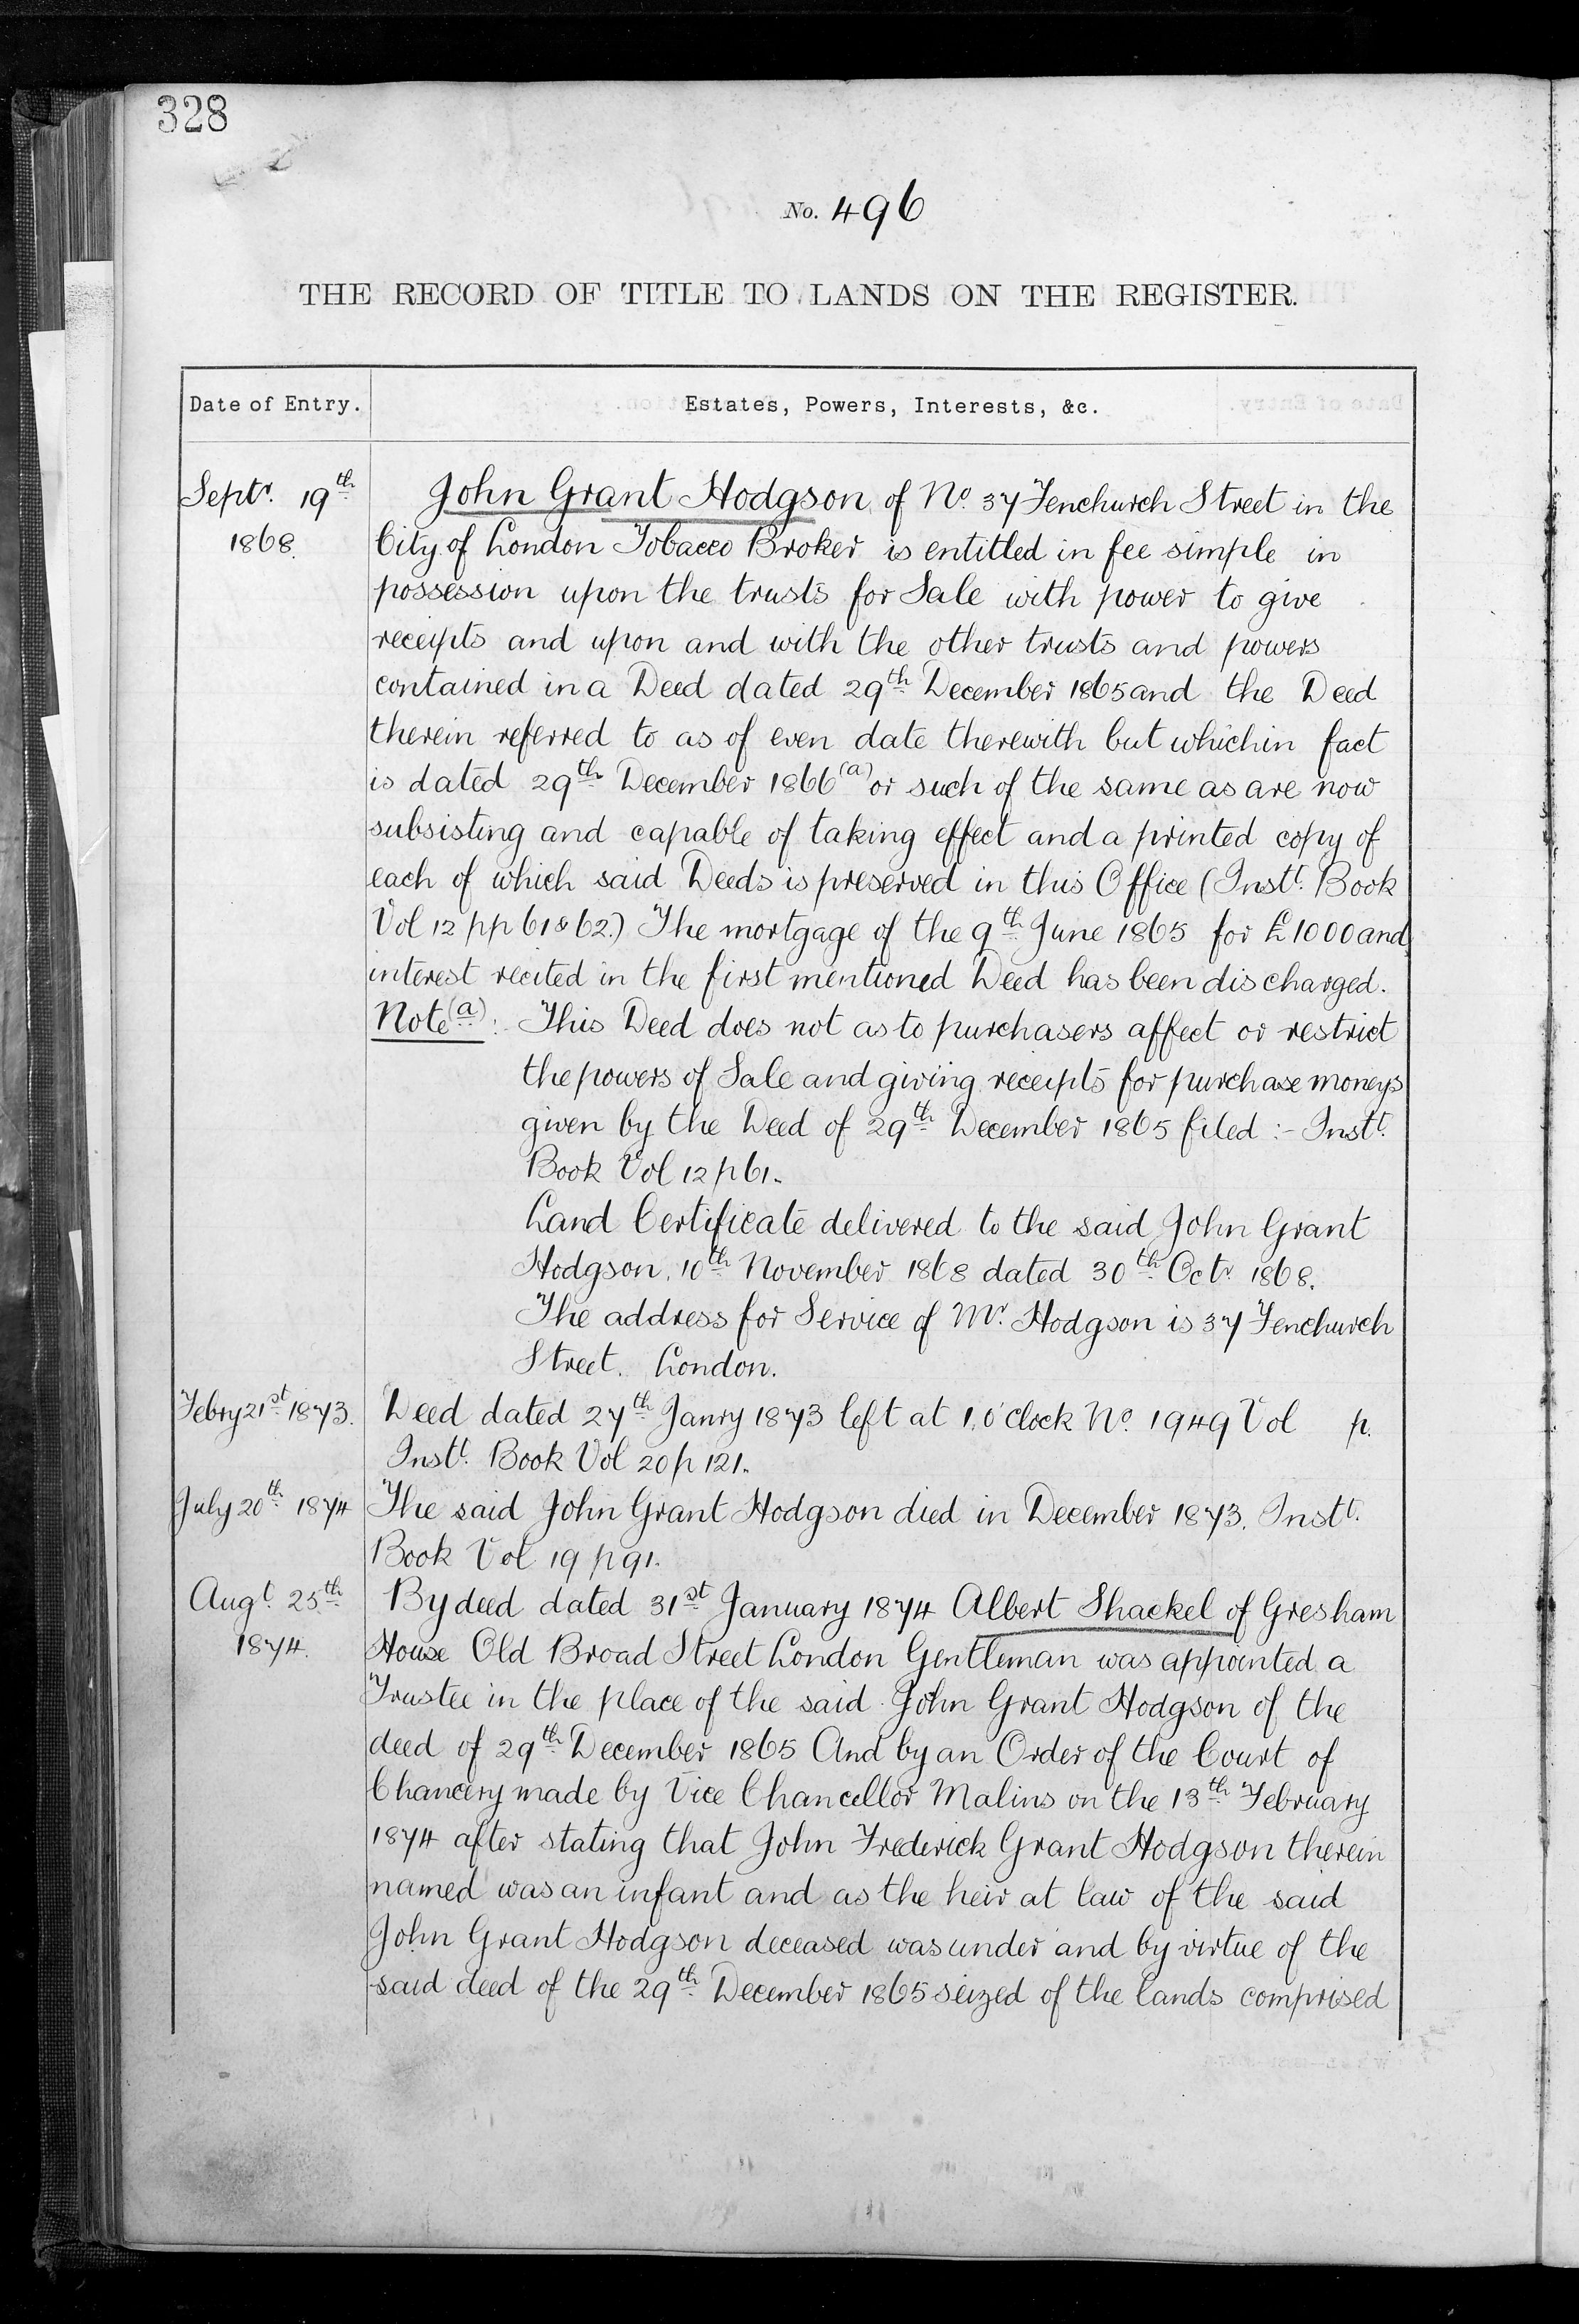 328
No. 496
THE RECORD OF TITLE TO LANDS ON THE REGISTER.
Date of Entry. Estates, Powers, Interests, &c.
Septr. 19th John Grant Hodgson of No. 37 Fenchurch Street in the
1868. City of London Tobacco Broker is entitled in fee simple in
possession upon the trusts for Sale with power to give
receipts and upon and with the other trusts and powers
contained in a Deed dated 29th December 1865 and the Deed
therein referred to as of even date therewith but which in fact
is dated 29th December 1866 (a) or such of the same as are now
subsisting and capable of taking effect and a printed copy of
each of which said Deeds is preserved in this Office (Instt. Book
Vol 12 pp 61 & 62.) The mortgage of the 9th June 1865 for £1000 and
interest recited in the first mentioned Deed has been discharged.
Note (a): This Deed does not as to purchasers affect or restrict
the powers of Sale and giving receipts for purchase moneys
given by the Deed of 29th December 1865 filed :- Instt.
Book Vol 12 p 61.
Land Certificate delivered to the said John Grant
Hodgson, 10th November 1868 dated 30th Octr. 1868.
The address for Service of Mr. Hodgson is 37 Fenchurch
Street. London.
Febry 21st 1873. Deed dated 27th Janry 1873 left at 1, o'clock No. 1949 Vol p.
Instt. Book Vol 20 p 121.
July 20th 1874 The said John Grant Hodgson died in December 1873. Instt.
Book Vol 19 p 91.
Augt. 25th By deed dated 31st January 1874 Albert Shackel of Gresham
1874. House Old Broad Street London Gentleman was appointed a
Trustee in the place of the said John Grant Hodgson of the
deed of 29th December 1865 And by an Order of the Court of
Chancery made by Vice Chancellor Malins on the 13th February
1874 after stating that John Frederick Grant Hodgson therein
named was an infant and as the heir at law of the said
John Grant Hodgson deceased was under and by virtue of the
said deed of the 29th December 1865 seized of the lands comprised